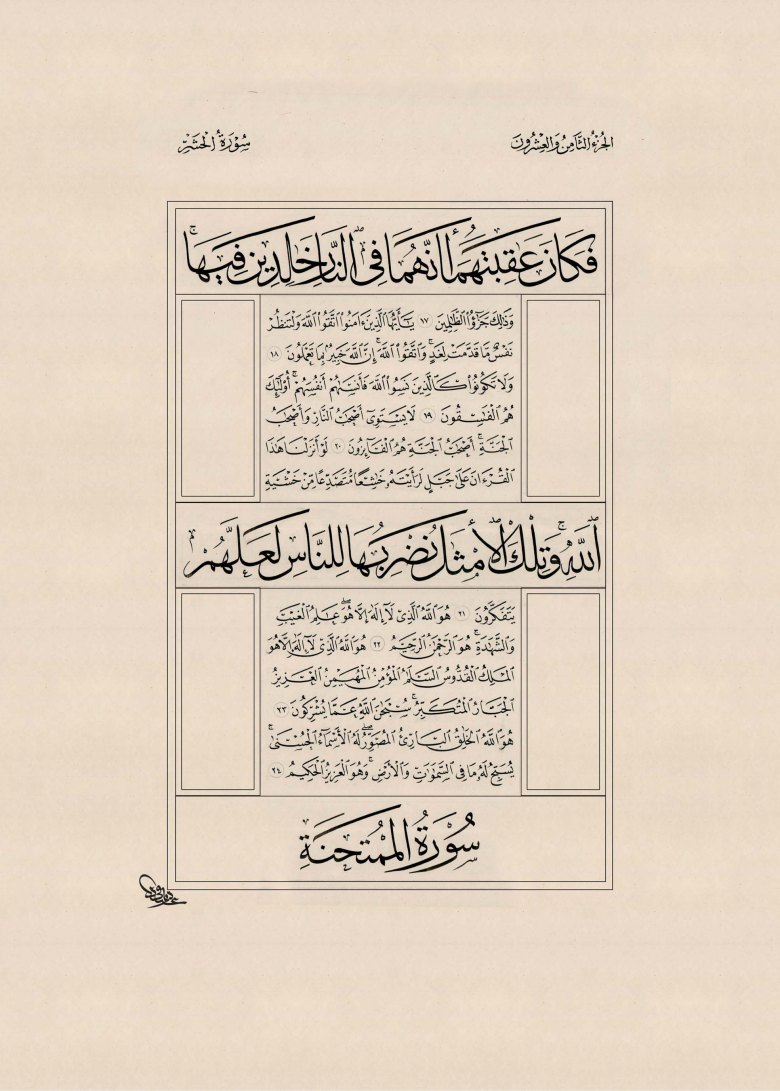 الجُزْءُ الثَّامِنُ وَالعِشْرُونَ
سُورَةُ الحَشْرِ
فَكَانَ عَٰقِبَتَهُمَآ أَنَّهُمَا فِى ٱلنَّارِ خَٰلِدَيْنِ فِيهَا ۚ
وَذَٰلِكَ جَزَٰٓؤُا۟ ٱلظَّٰلِمِينَ ١٧ يَٰٓأَيُّهَا ٱلَّذِينَ ءَامَنُوا۟ ٱتَّقُوا۟ ٱللَّهَ وَلْتَنظُرْ
نَفْسٌ مَّا قَدَّمَتْ لِغَدٍ ۖ وَٱتَّقُوا۟ ٱللَّهَ ۚ إِنَّ ٱللَّهَ خَبِيرٌۢ بِمَا تَعْمَلُونَ ١٨
وَلَا تَكُونُوا۟ كَٱلَّذِينَ نَسُوا۟ ٱللَّهَ فَأَنسَىٰهُمْ أَنفُسَهُمْ ۚ أُو۟لَٰٓئِكَ
هُمُ ٱلْفَٰسِقُونَ ١٩ لَا يَسْتَوِىٓ أَصْحَٰبُ ٱلنَّارِ وَأَصْحَٰبُ
ٱلْجَنَّةِ ۚ أَصْحَٰبُ ٱلْجَنَّةِ هُمُ ٱلْفَآئِزُونَ ٢٠ لَوْ أَنزَلْنَا هَٰذَا
ٱلْقُرْءَانَ عَلَىٰ جَبَلٍ لَّرَأَيْتَهُۥ خَٰشِعًا مُّتَصَدِّعًا مِّنْ خَشْيَةِ
ٱللَّهِ ۚ وَتِلْكَ ٱلْأَمْثَٰلُ نَضْرِبُهَا لِلنَّاسِ لَعَلَّهُمْ
يَتَفَكَّرُونَ ٢١ هُوَ ٱللَّهُ ٱلَّذِى لَآ إِلَٰهَ إِلَّا هُوَ ۖ عَٰلِمُ ٱلْغَيْبِ
وَٱلشَّهَٰدَةِ ۖ هُوَ ٱلرَّحْمَٰنُ ٱلرَّحِيمُ ٢٢ هُوَ ٱللَّهُ ٱلَّذِى لَآ إِلَٰهَ إِلَّا هُوَ
ٱلْمَلِكُ ٱلْقُدُّوسُ ٱلسَّلَٰمُ ٱلْمُؤْمِنُ ٱلْمُهَيْمِنُ ٱلْعَزِيزُ
ٱلْجَبَّارُ ٱلْمُتَكَبِّرُ ۚ سُبْحَٰنَ ٱللَّهِ عَمَّا يُشْرِكُونَ ٢٣
هُوَ ٱللَّهُ ٱلْخَٰلِقُ ٱلْبَارِئُ ٱلْمُصَوِّرُ ۖ لَهُ ٱلْأَسْمَآءُ ٱلْحُسْنَىٰ ۚ
يُسَبِّحُ لَهُۥ مَا فِى ٱلسَّمَٰوَٰتِ وَٱلْأَرْضِ ۖ وَهُوَ ٱلْعَزِيزُ ٱلْحَكِيمُ ٢٤
سُورَةُ المُمْتَحَنَةِ